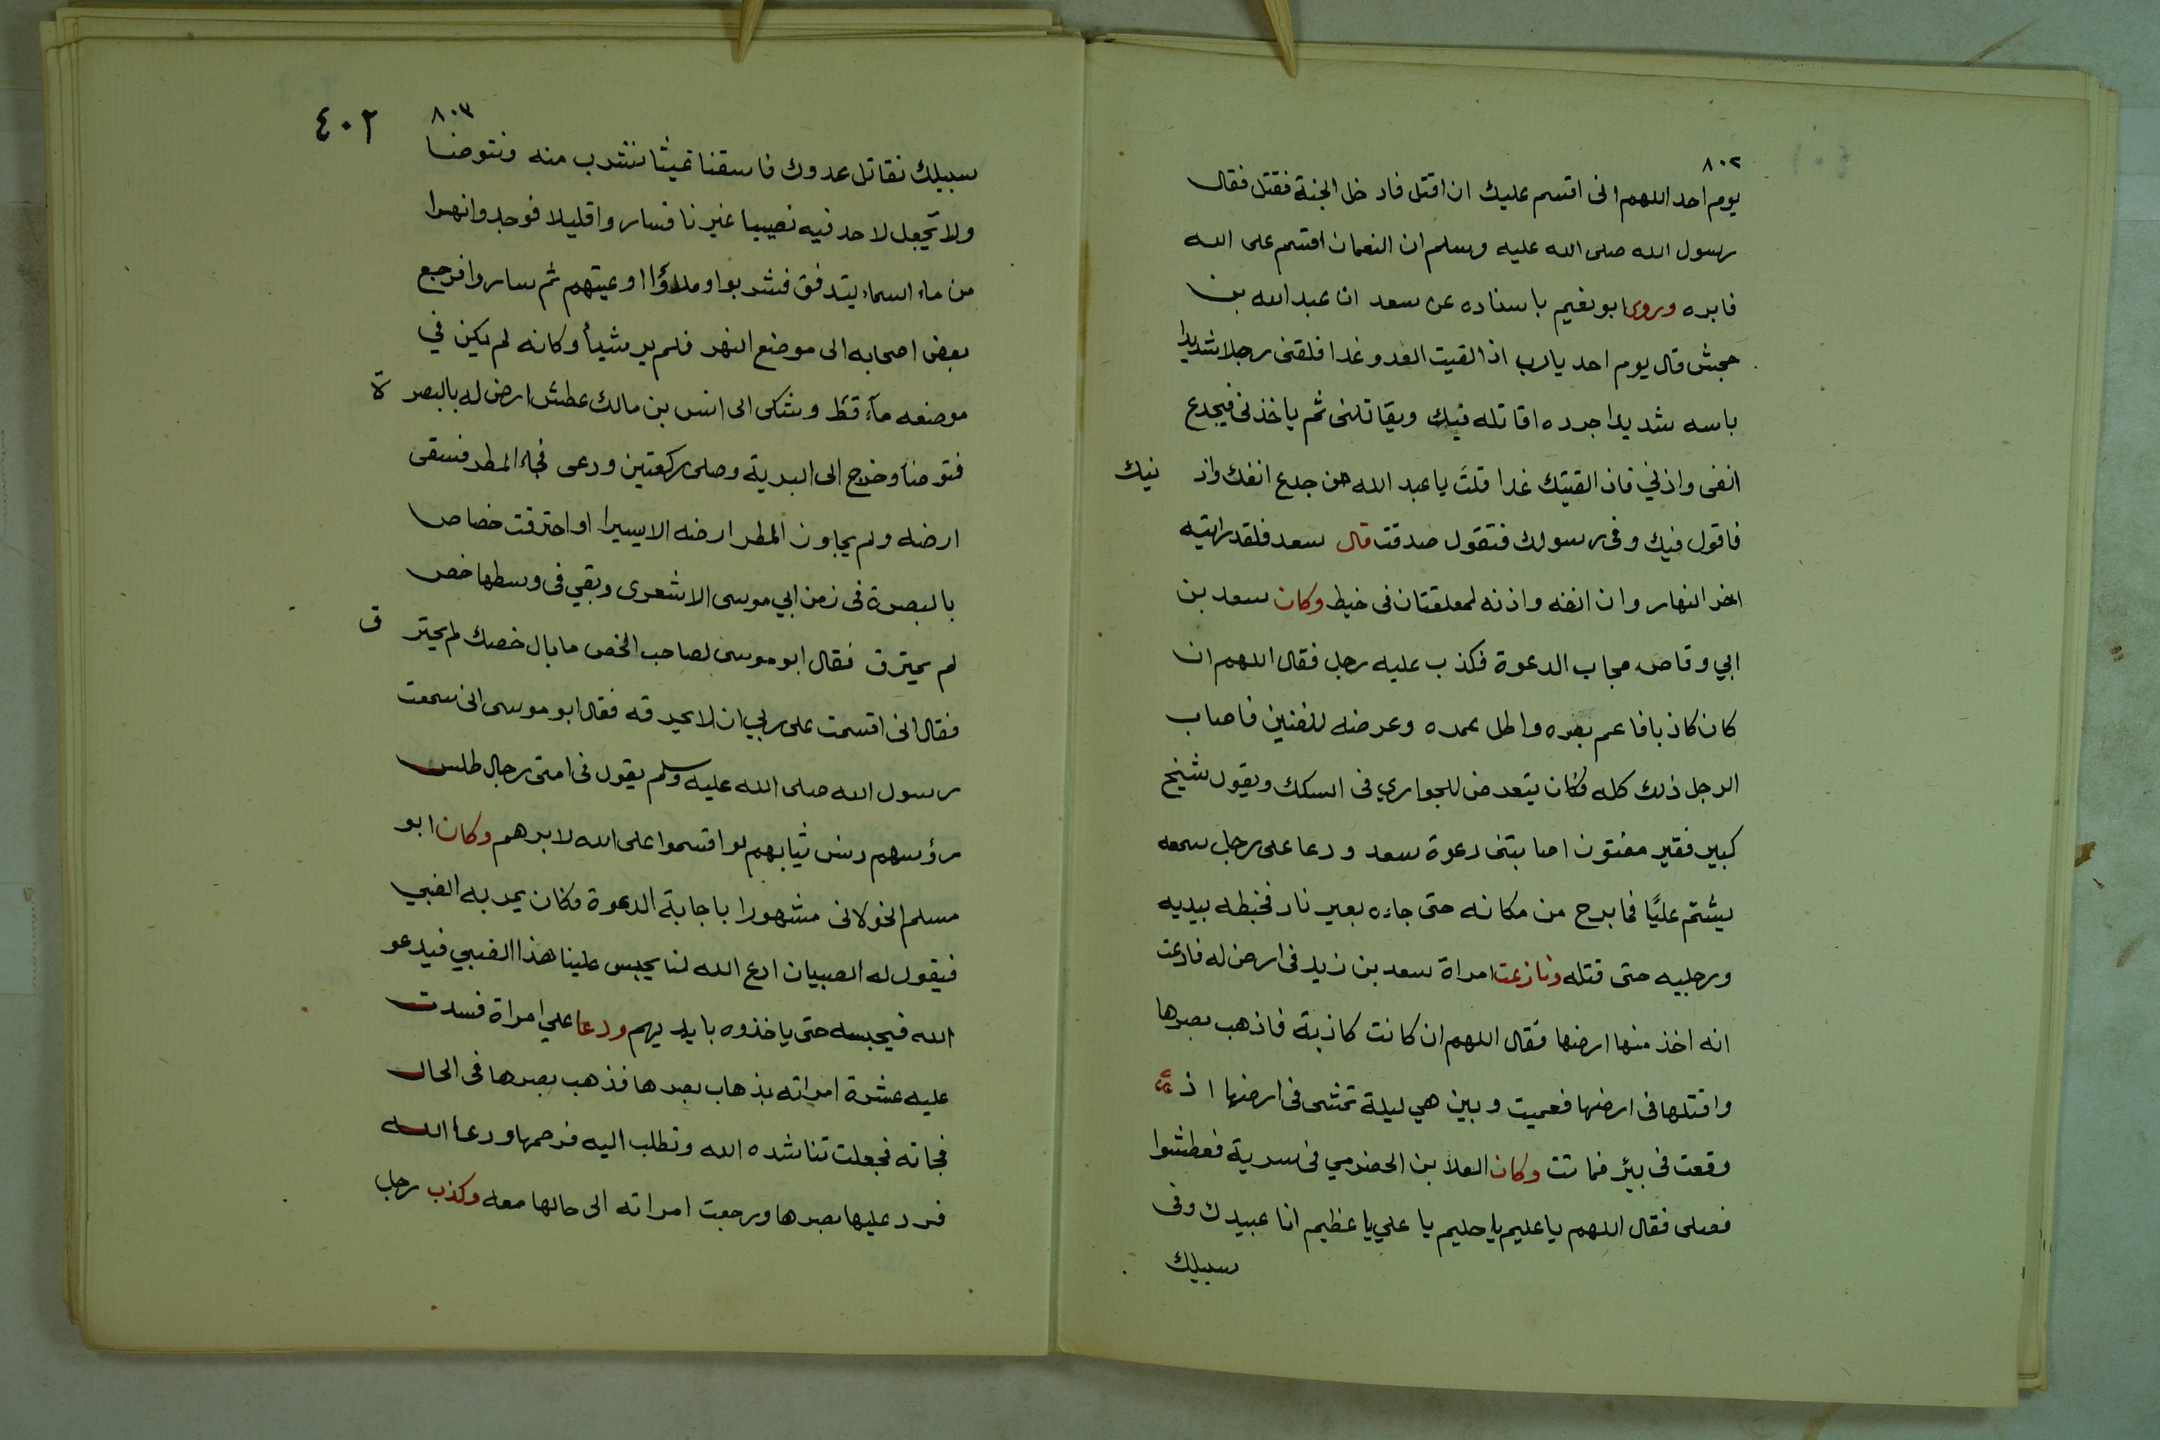 ٨٠٢
يوم احد اللهم انى اقسم عليك ان اقتل فادخل الجنة فقتل فقال
رسول الله صلى الله عليه وسلم ان النعمان اقسم على الله
فابره وروى ابو نعيم باسناده عن سعد ان عبد الله بن
جحش قال يوم احد يا رب اذا لقيت العدو غدا فلقنى رجلا شديدا
باسه شديدا حرده اقاتله فيك ويقاتلنى ثم ياخذنى فيجدع
انفى واذنى فاذ القيتك غدا قلت يا عبد الله من جدع انفك واذنيك
فاقول فيك وفى رسولك فتقول صدقت قال سعد فلقد رايته
اخر النهار وان انفه واذنه لمعلقتان فى خيط وكان سعد بن
ابي وقاص مجاب الدعوة فكذب عليه رجل فقال اللهم ان
كان كاذبا فاعم بصره واطل عمره وعرضه للفتن فاصاب
الرجل ذلك كله فكان يتعرض للجواري فى السكك ويقول شيخ
كبير فقير مفتون اصابتنى دعوة سعد ودعا على رجل سمعه
يشتم عليًا فما برح من مكانه حتى جاءه بعير ناد فخبطه بيديه
ورجليه حتى قتله ونازعت امراة سعد بن زيد فى ارض له فادعت
انه اخذ منها ارضها فقال اللهم ان كانت كاذبة فاذهب بصرها
واقتلها فى ارضها فعميت وبين هي ليلة تمشى فى ارضها اذ
وقعت فى بئر فماتت وكان العلا بن الحضرمي فى سرية فعطشوا
فصلى فقال اللهم يا عليم يا حليم يا علي يا عظيم انا عبيدك وفى
سبيلك
٨٠٣
٤٠٢
سبيلك نقاتل عدوك فاسقنا غيثا نشرب منه ونتوضا
ولا تجعل لاحد فيه نصيبا غيرنا فساروا قليلا فوجدوا نهرا
من ماء السماء يتدفق فشربوا وملؤا اوعيتهم ثم ساروا فرجع
بعض اصحابه الى موضع النهر فلم ير شيأ وكانه لم يكن في
موضعه ماء قط وشكى الى انس بن مالك عطش ارض له بالبصرة
فتوضأ وخرج الى البرية وصلى ركعتين ودعى فجاء المطر فسقى
ارضه ولم يجاوز المطر ارضه الا يسيرا او احترقت خصاص
بالبصرة فى زمن ابي موسى الاشعرى وبقي فى وسطها خص
لم يحترق فقال ابو موسى لصاحب الخص ما بال خصك لم يحترق
فقال انى اقسمت على ربي ان لا يحرقه فقال ابو موسى انى سمعت
رسول الله صلى الله عليه وسلم يقول فى امتى رجال طلس
رؤسهم دنس ثيابهم لو اقسموا على الله لابرهم وكان ابو
مسلم الخولانى مشهورا باجابة الدعوة فكان يمر به الظبي
فيقول له الصبيان ادع الله لنا يحبس علينا هذا الظبي فيدعو
الله فيحبسه حتى ياخذوه بايديهم ودعا علي امراة فسدت
عليه عشرة امراته بذهاب بصرها فذهب بصرها فى الحال
فجاته فجعلت تناشده الله وتطلب اليه فرحمها ودعا الله
فرد عليها بصرها ورجعت امراته الى حالها معه وكذب رجل